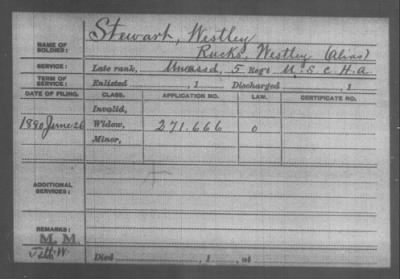 Stewart, Westley
NAME OF SOLDIER: Rucks, Westley (Alias)
SERVICE: Late rank, Unassd, 5 Reg't U.S.C.H.A.
TERM OF SERVICE: Enlisted , 1 Discharged , 1
DATE OF FILING. CLASS. APPLICATION NO. LAW. CERTIFICATE NO.
Invalid,
1880 June 26 Widow, 271.666 0
Minor,
ADDITIONAL SERVICES:
REMARKS:
M. M.
Died , 1 , at